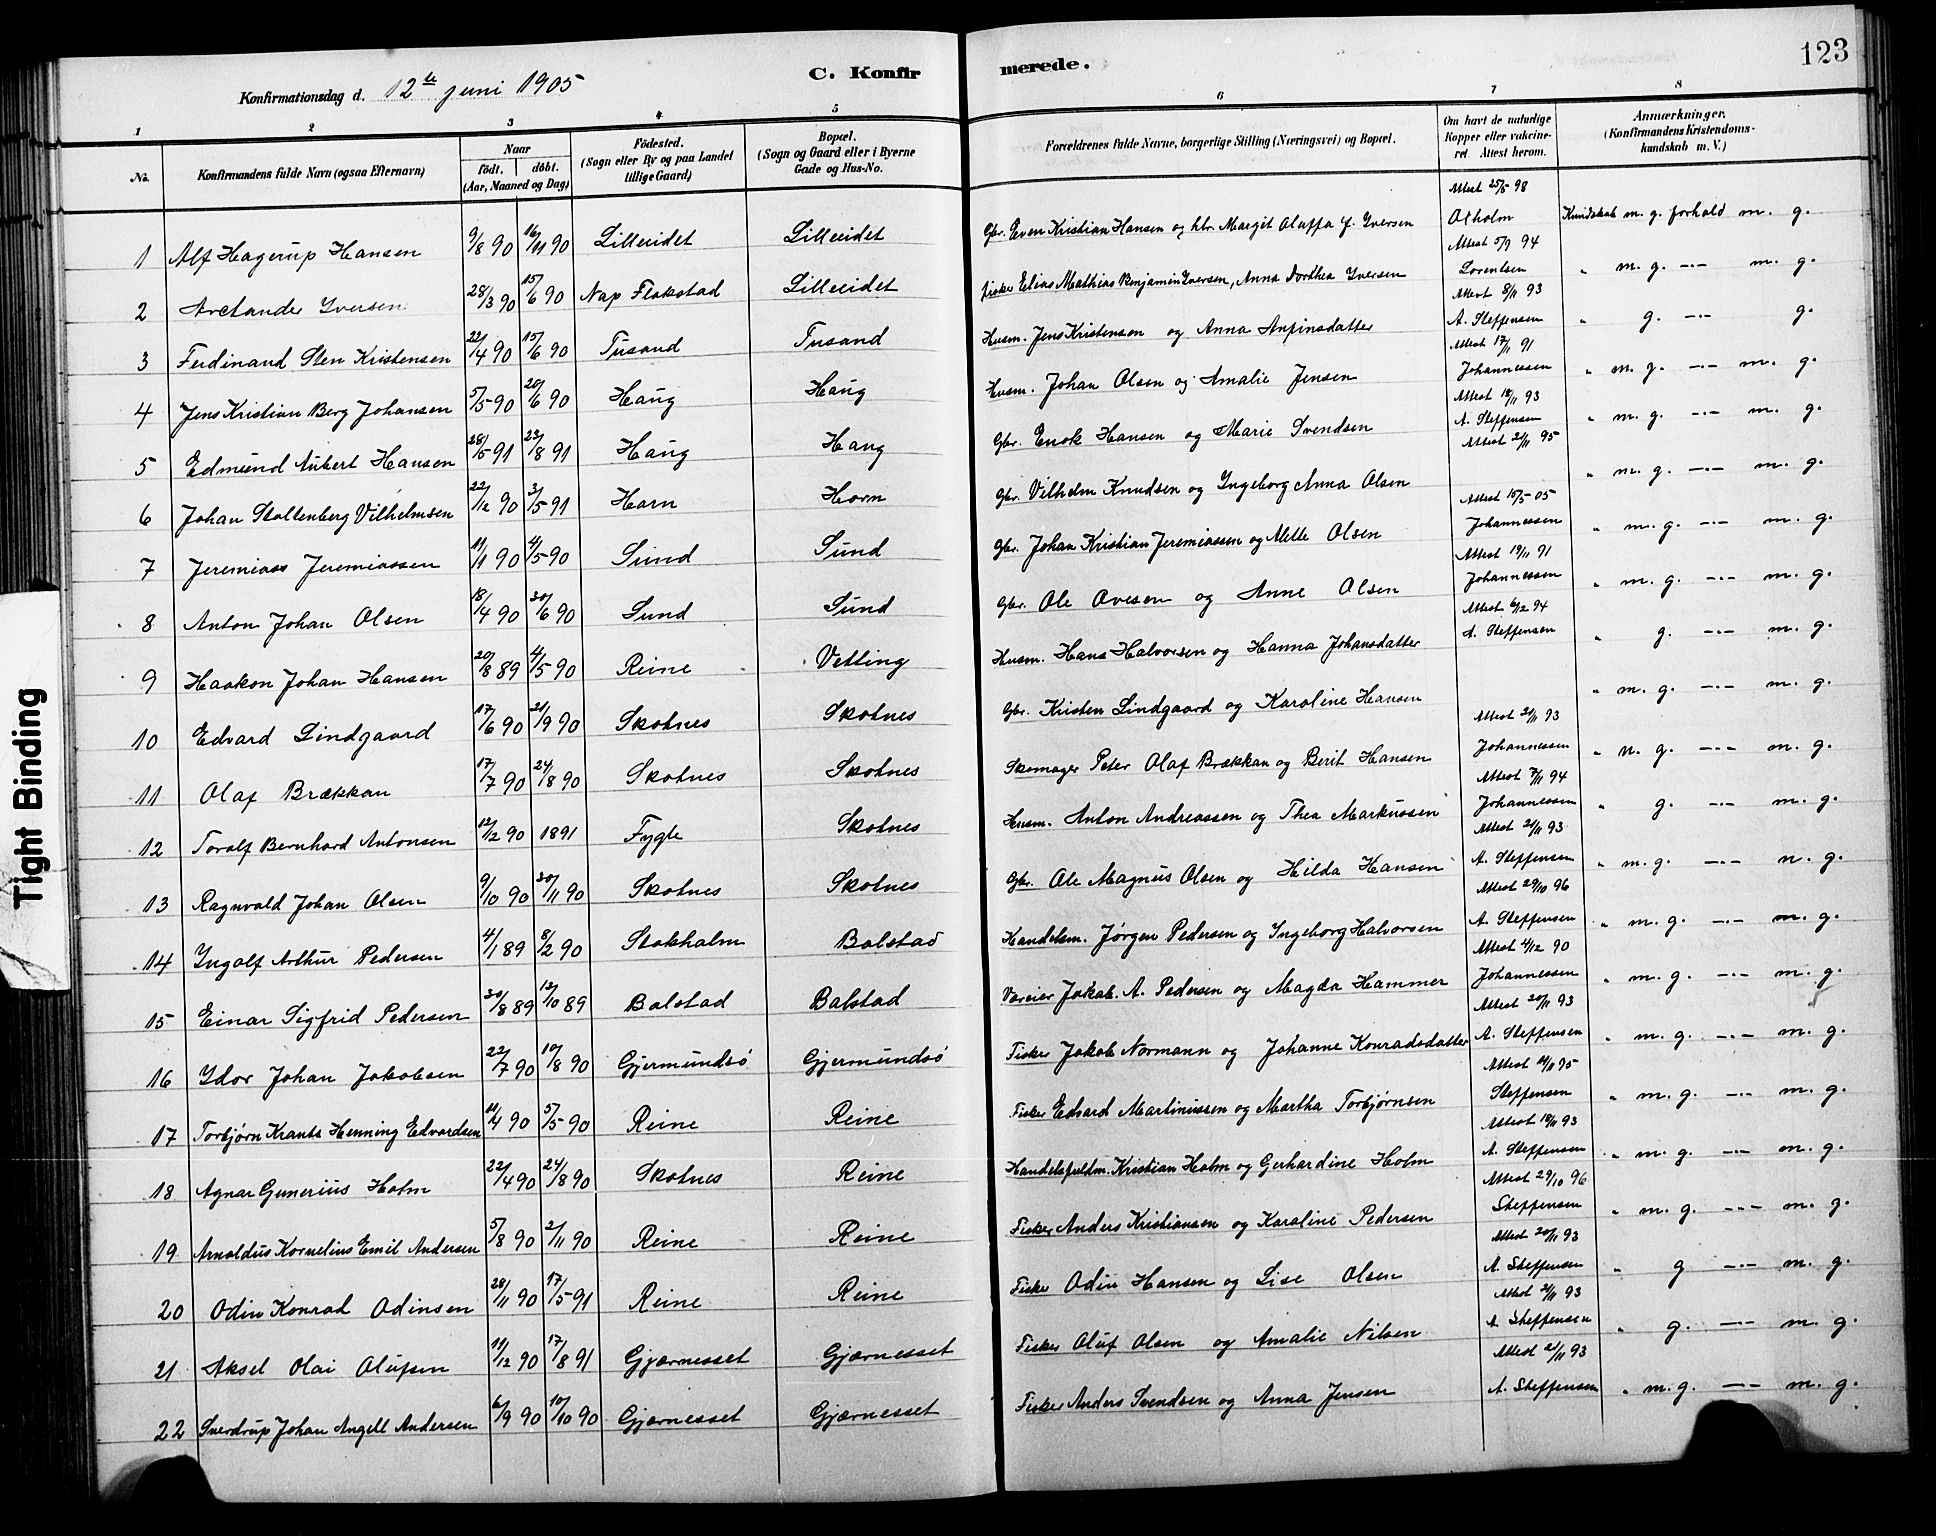 123
C. Konfir merede.
Konfirmationsdag d. 12te juni 1905
1 2 3 4 5 6 7 8
No. Konfirmandens fulde Navn (ogsaa Efternavn) Naar født. døbt. (Aar, Maaned og Dag) Fødested. (Sogn eller By og paa Landet tillige Gaard) Bopæl. (Sogn og Gaard eller i Byerne Gade og Hus-No. Forældrenes fulde Navne, borgerlige Stilling (Næringsvei) og Bopæl. Om havt de naturlige Kopper eller vakcineret. Attest herom. Anmærkninger. (Konfirmandens Kristendomskundskab m. V.)
1 Alf Hagerup Hansen 9/8 90 16/11 90 Lilleidet Lilleidet Gbr. Even Kristian Hansen og htr. Margit Olaffa f. Iversen Attest 25/5 98 Olholm Kundskab m. g. forhold m. g.
2 Arctander Iversen 28/3 90 15/6 90 Nap Flakstad Lilleidet Fisker Elias Mathias Benjamin Iversen, Anna Dorthea Iversen Attest 5/9 94 Lorentsen " m. g. -"- m. g.
3 Ferdinand Sten Kristensen 22/4 90 15/6 90 Tusand Tusand Husm. Jens Kristensen og Anna Anfinsdatter Attest 8/11 93 A. Steffensen " g. -"- g.
4 Jens Kristian Berg Johansen 5/5 90 20/6 90 Haug Haug Husm. Johan Olsen og Amalie Jensen Attest 17/1 91 Johannessen " m. g. -"- m. g.
5 Edmund Aubert Hansen 28/5 91 23/8 91 Haug Haug Gbr. Enok Hansen og Marie Svendsen Attest 18/11 93 A. Steffensen " m. g. -"- m. g.
6 Johan Stoltenberg Vilhelmsen 22/12 90 3/5 91 Horn Horn Gbr. Vilhelm Knudsen og Ingeborg Anna Olsen Attest 2/11 95 " m. g. -"- m. g.
7 Jeremias Jeremiassen 11/1 90 4/5 90 Sund Sund Gbr. Johan Kristian Jeremiassen og Mette Olsen Attest 15/5 05 Johannessen " m. g. -"- m. g.
8 Anton Johan Olsen 18/4 90 30/6 90 Sund Sund Gbr. Ole Ovesen og Anne Olsen Attest 19/11 91 Johannessen " m. g. -"- m. g.
9 Haakon Johan Hansen 20/8 89 4/5 90 Reine Vetting Husm. Hans Halvorsen og Hanna Johansdatter Attest 6/12 94 A. Steffensen " g. -"- m. g.
10 Edvard Lindgaard 17/6 90 21/9 90 Skotnes Skotnes Gbr. Kristen Lindgaard og Karoline Hansen " m. g. -"- m. g.
11 Olaf Brækkan 17/7 90 24/8 90 Skotnes Skotnes Skomager Peter Olaf Brækkan og Berit Hansen Attest 21/11 93 Johannessen " m. g. -"- m. g.
12 Toralf Bernhard Antonsen 12/2 90 1891 Fygle Skotnes Husm. Anton Andreassen og Thea Markussen Attest 7/11 94 Johannessen " g. -"- m. g.
13 Ragnvald Johan Olsen 9/10 90 30/11 90 Skotnes Skotnes Gbr. Ole Magnus Olsen og Hilda Hansen Attest 21/11 93 A. Steffensen " m. g. -"- m. g.
14 Ingolf Arthur Pedersen 4/1 89 8/2 90 Stokholm Balstad Handelsm. Jørgen Pedersen og Ingeborg Halvorsen Attest 29/10 96 A. Steffensen " m. g. -"- m. g.
15 Einar Sigfrid Pedersen 30/8 89 13/10 89 Balstad Balstad Væreier Jakob A. Pedersen og Magda Hammer Attest 4/12 90 Johannessen " m. g. -"- m. g.
16 Idor Johan Jakobsen 22/7 90 10/8 90 Gjermundsø Gjermundsø Fisker Jakob Normann og Johanne Konradsdatter Attest 20/11 93 A. Steffensen " m. g. -"- m. g.
17 Torbjørn Krants Henning Edvardsen 11/4 90 5/5 90 Reine Reine Fisker Edvard Martinussen og Martha Torbjørnsen Attest 14/11 95 Steffensen " m. g. -"- m. g.
18 Agnar Gunerius Holm 22/4 90 24/8 90 Skotnes Reine Handelsfuldm. Kristian Holm og Gerhardine Holm Attest 18/11 93 A. Steffensen " m. g. -"- m. g.
19 Arnoldus Kornelius Emil Andersen 5/8 90 2/11 90 Reine Reine Fisker Anders Kristiansen og Karoline Pedersen Attest 29/10 96 Steffensen " m. g. -"- m. g.
20 Odin Konrad Odinsen 28/11 90 17/5 91 Reine Reine Fisker Odin Hansen og Lise Olsen Attest 20/11 93 A. Steffensen " g -"- m. g.
21 Aksel Olai Olufsen 11/12 90 17/8 91 Gjærnesset Gjærnesset Fisker Oluf Olsen og Amalie Nilsen Attest 2/11 93 A. Steffensen " g. -"- m. g.
22 Sverdrup Johan Angell Andersen 6/9 90 10/10 90 Gjærnesset Gjærnesset Fisker Anders Svendsen og Anna Jensen Attest 2/11 93 A. Steffensen " m. g. -"- m. g.
Tight Binding